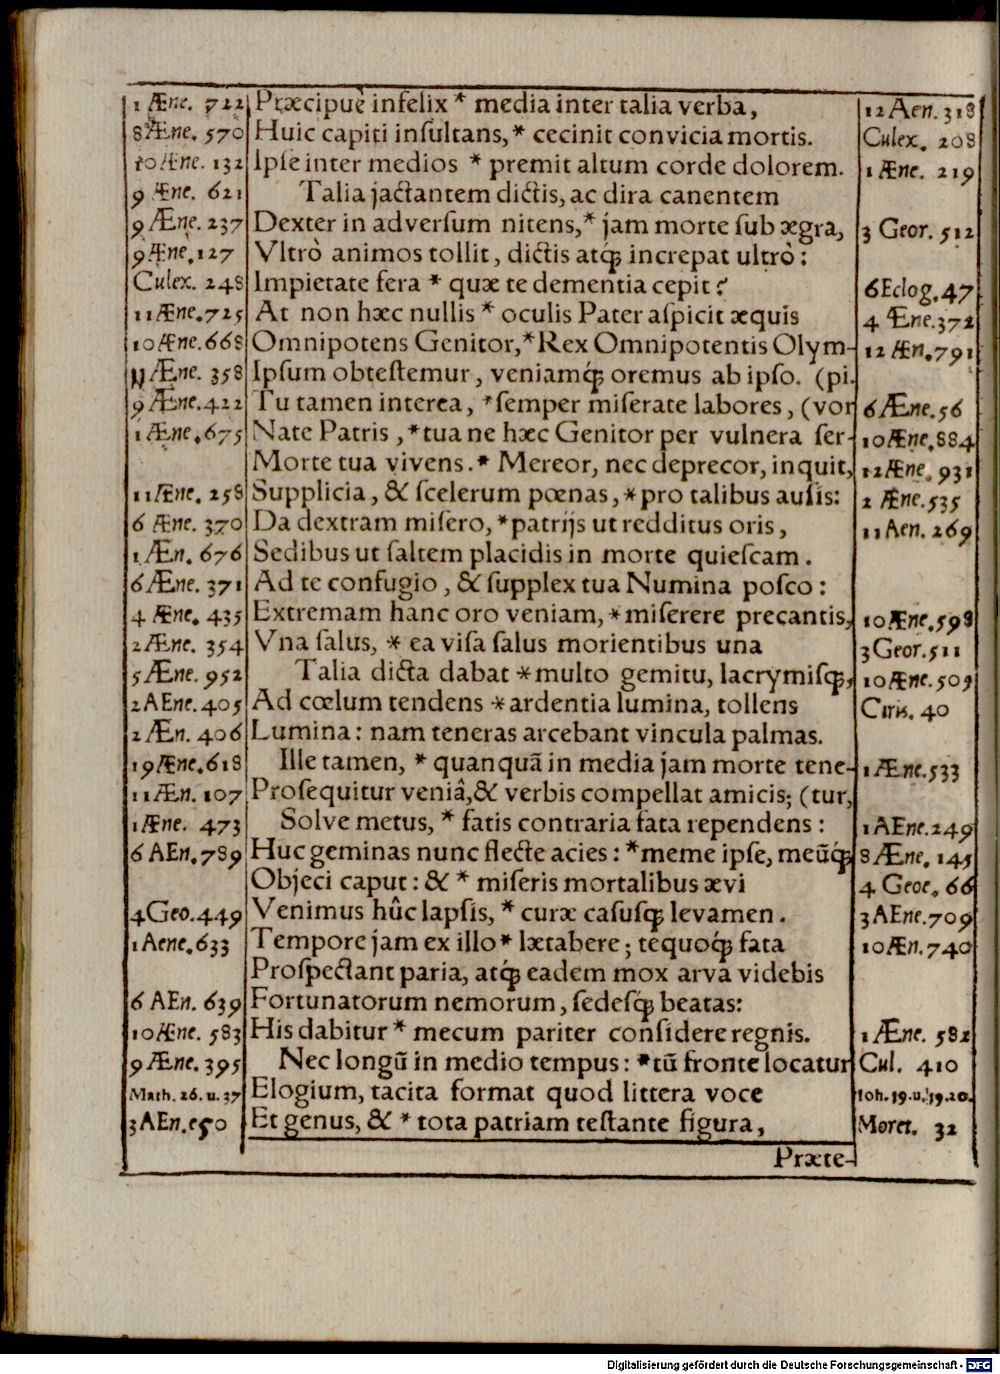 1 Æne. 722 Præcipuè infelix * media inter talia verba, 12 Aen. 318
8 Æne. 570 Huic capiti insultans, * cecinit convicia mortis. Culex. 208
10 Æne. 132 Ipse inter medios * premit altum corde dolorem. 1 Æne. 219
9 Æne. 621 Talia jactantem dictis, ac dira canentem
9 Æne. 237 Dexter in adversum nitens, * jam morte sub ægra, 3 Geor. 512
9 Æne. 127 Vltrò animos tollit, dictis atq́; increpat ultrò:
Culex. 248 Impietate fera * quæ te dementia cepit? 6 Eclog. 47
11 Æne. 725 At non hæc nullis * oculis Pater aspicit æquis 4 Æne. 372
10 Æne. 668 Omnipotens Genitor, * Rex Omnipotentis Olym- 12 Æn. 791
Æne. 358 Ipsum obtestemur, veniamq́; oremus ab ipso. (pi.
9 Æne. 422 Tu tamen interea, * semper miserate labores, (vor 6 Æne. 56
1 Æne. 675 Nate Patris, * tua ne hæc Genitor per vulnera ser- 10 Æne. 884
Morte tua vivens. * Mereor, nec deprecor, inquit, 12 Æne. 931
11 Æne. 258 Supplicia, & scelerum pœnas, * pro talibus ausis: 2 Æne. 535
6 Æne. 370 Da dextram misero, * patrijs ut redditus oris, 11 Aen. 269
1 Æn. 676 Sedibus ut saltem placidis in morte quiescam.
6 Æne. 371 Ad te confugio, & supplex tua Numina posco:
4 Æne. 435 Extremam hanc oro veniam, * miserere precantis, 10 Æne. 598
2 Æne. 354 Vna salus, * ea visa salus morientibus una 3 Geor. 511
5 Æne. 952 Talia dicta dabat * multo gemitu, lacrymisq́; 10 Æne. 505
2 AEne. 405 Ad cœlum tendens * ardentia lumina, tollens Ciris. 40
2 Æn. 406 Lumina: nam teneras arcebant vincula palmas.
19 Æne. 618 Ille tamen, * quanquã in media jam morte tene- 1 Æne. 533
11 Æn. 107 Prosequitur veniâ, & verbis compellat amicis; (tur,
1 Æne. 473 Solve metus, * fatis contraria fata rependens: 1 AEne. 249
6 AEn. 789 Huc geminas nunc flecte acies: * meme ipse, meũq́; 8 Æne. 145
Objeci caput: & * miseris mortalibus ævi 4 Geor. 66
4 Geo. 449 Venimus hûc lapsis, * curæ casusq́; levamen. 3 AEne. 709
1 Aene. 633 Tempore jam ex illo * lætabere; tequoq́; fata 10 Æn. 740
Prospectant paria, atq́; eadem mox arva videbis
6 AEn. 639 Fortunatorum nemorum, sedesq́; beatas:
10 Æne. 583 His dabitur * mecum pariter considere regnis. 1 Æne. 582
9 Æne. 395 Nec longũ in medio tempus: * tũ fronte locatur Cul. 410
Math. 26. u. 37 Elogium, tacita format quod littera voce Ioh. 19. u. 19.20.
3 AEn. Et genus, & * tota patriam testante figura, Moret. 32
Præte-
Digitalisierung gefördert durch die Deutsche Forschungsgemeinschaft - DFG